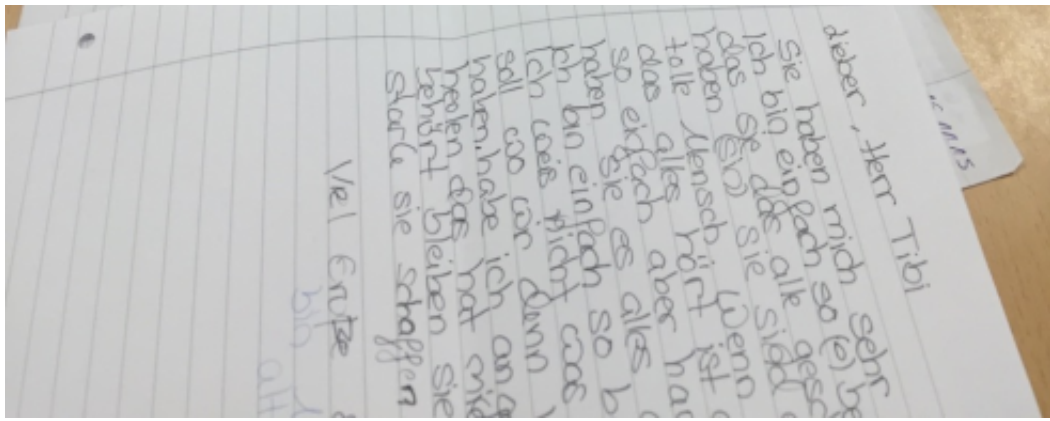 Lieber, Herr Tibi
Sie haben mich sehr be
Ich bin einfach so (e)
das Sie das alle gesch
haben (Siw) sie sind
tolle Mensch Wenn
das alles hört ist
so einfach aber ha
haben sie es alles
Ich bin einfach so b
Ich weis nicht was
soll wo wir denn
haben, habe ich an
heolen das hat mi
behürt bleiben sie
stark sie schaffen
Viel Grütze
bin
alt